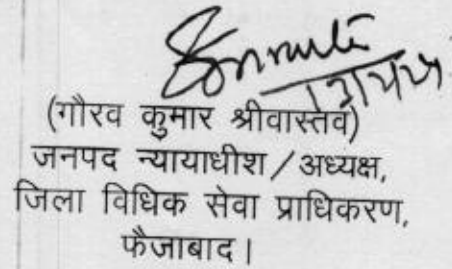 (गौरव कुमार श्रीवास्तव)
जनपद न्यायाधीश / अध्यक्ष,
जिला विधिक सेवा प्राधिकरण,
फैजाबाद।